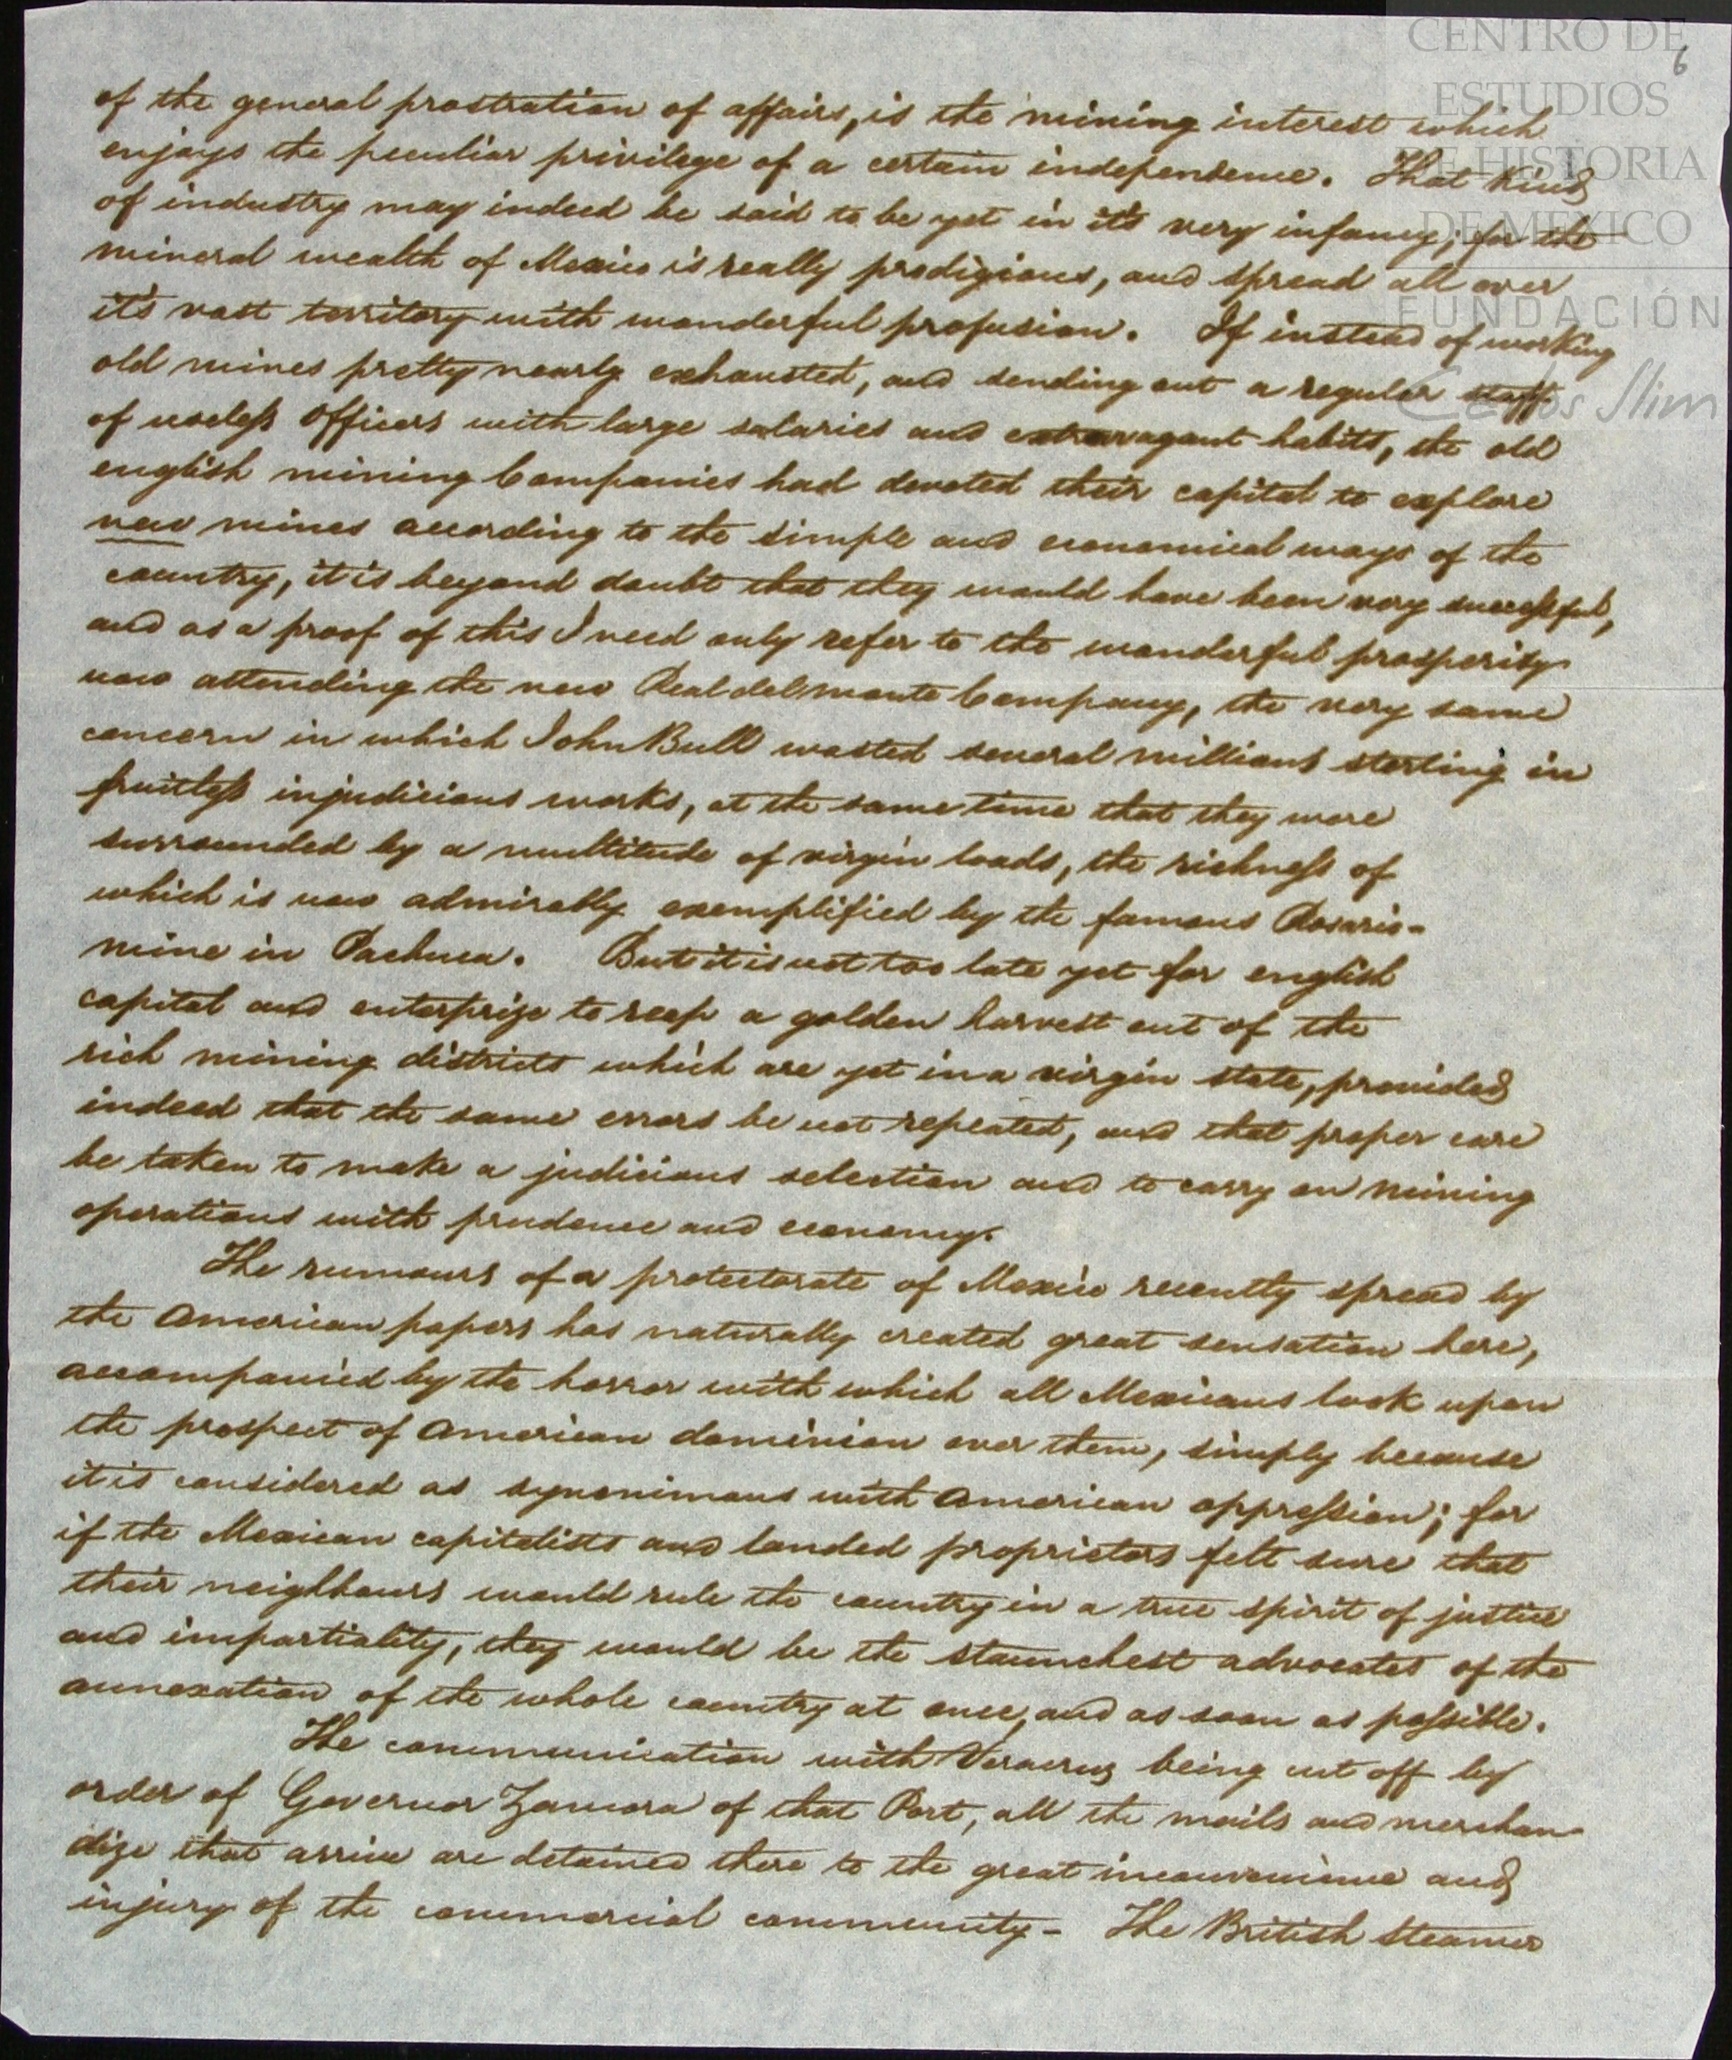 CENTRO DE
ESTUDIOS
DE HISTORIA
DE MEXICO
FUNDACIÓN
Carlos Slim
6
of the general prostration of affairs, is the mining interest which
enjoys the peculiar privilege of a certain independence. That kind
of industry may indeed be said to be yet in it's very infancy; for the
mineral wealth of Mexico is really prodigious, and spread all over
it's vast territory with wonderful profusion. If instead of working
old mines pretty nearly exhausted, and sending out a regular staff
of useless officers with large salaries and extravagant habits, the old
english mining Companies had devoted their capital to explore
new mines according to the simple and economical ways of the
country, it is beyond doubt that they would have been very successful,
and as a proof of this I need only refer to the wonderful prosperity
now attending the new Real del monte Company, the very same
concern in which John Bull wasted several millions sterling in
fruitless injudicious works, at the same time that they were
surrounded by a multitude of virgin loads, the richness of
which is now admirably exemplified by the famous Rosario-
mine in Pachuca. But it is not too late yet for english
capital and enterprize to reap a golden harvest out of the
rich mining districts which are yet in a virgin state, provided
indeed that the same errors be not repeated, and that proper care
be taken to make a judicious selection and to carry on mining
operations with prudence and economy.
The rumours of a protectorate of Mexico recently spread by
the American papers has naturally created great sensation here,
accompanied by the horror with which all Mexicans look upon
the prospect of American dominion over them, simply because
it is considered as synonimous with American oppression; for
if the Mexican capitalists and landed proprietors felt sure that
their neighbours would rule the country in a true spirit of justice
and impartiality, they would be the staunchest advocates of the
annexation of the whole country at once, and as soon as possible.
The communication with Veracruz being cut off by
order of Governor Zamora of that Port, all the mails and merchan-
dize that arrive are detained there to the great inconvenience and
injury of the commercial community - The British Steamer